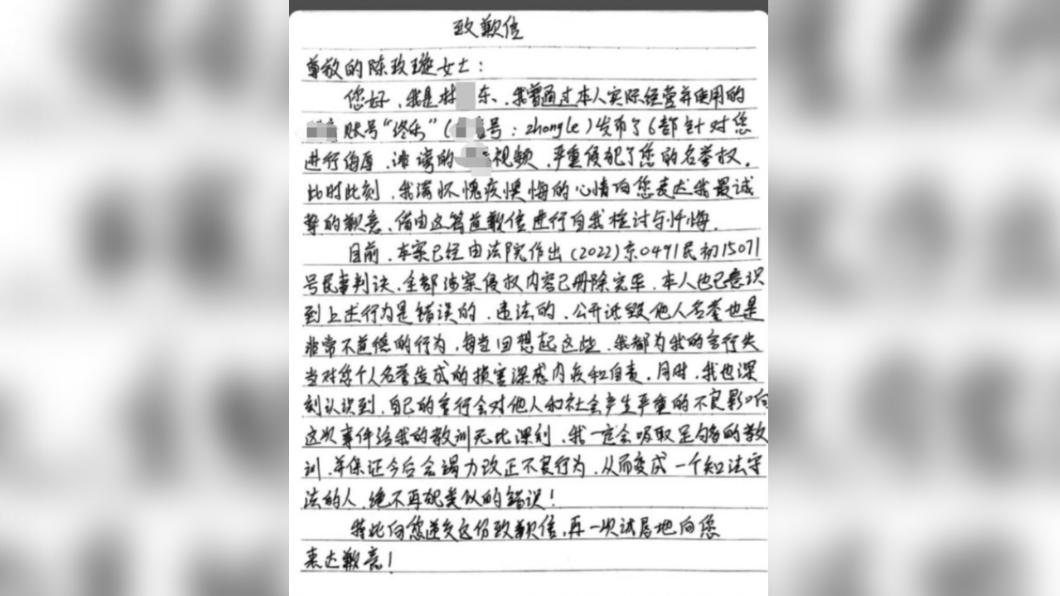 致歉信
尊敬的陈玫璇女士：
您好，我是林 东、我曾通过本人实际经营并使用的
账号“终乐”( 号：zhongle)发布了6部针对您
进行侮辱、诽谤的 视频，严重侵犯了您的名誉权，
此时此刻，我满怀愧疚懊悔的心情向您表达我最诚
挚的歉意，借由这篇道歉信进行自我检讨与忏悔，
目前，本案已经由法院作出(2022)京0491民初15071
号民事判决，全部涉案侵权内容已删除完毕，本人也已意识
到上述行为是错误的、违法的，公开诋毁他人名誉也是
非常不道德的行为，每当回想起这些，我都为我的言行失
当对您个人名誉造成的损害深感内疚和自责，同时，我也深
刻认识到，自己的言行会对他人和社会产生严重的不良影响
这次事件给我的教训无比深刻，我一定会吸取足够的教
训，并保证今后会竭力改正不良行为，从而变成一个知法守
法的人，绝不再犯类似的错误！
特此向您递交这份致歉信，再一次 地向您
表达歉意！